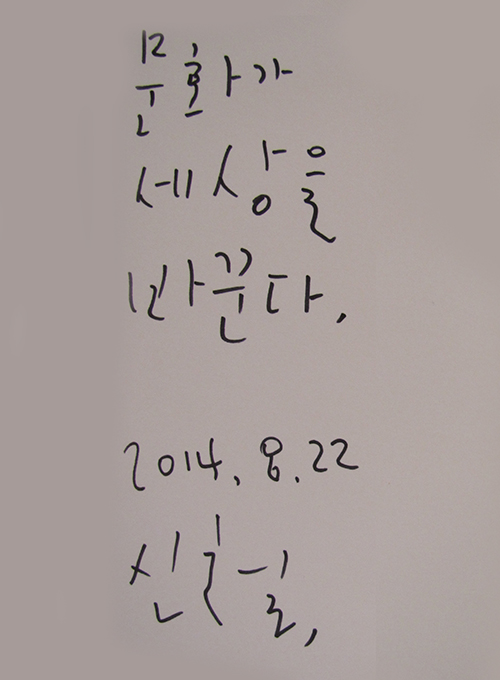 문화가
세상을
바꾼다.
2014. 8. 22